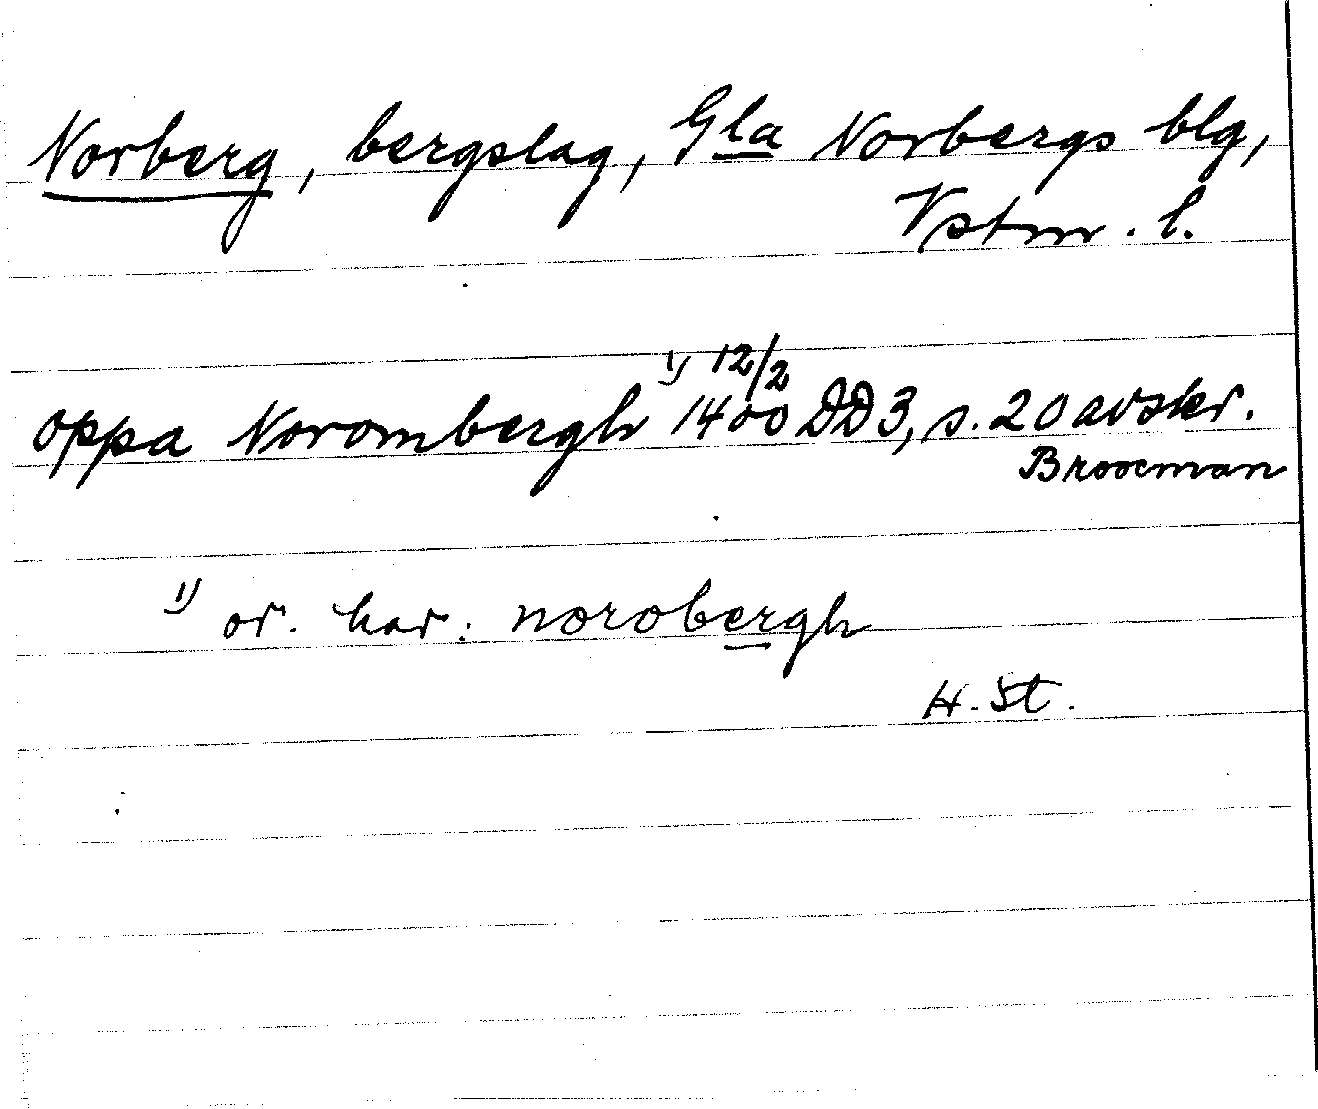 Norberg, bergslag, Gla Norbergs blg,
Vstm. l.
oppa Norombergh ¹⁾ 12/2 1400 DD3, s. 20 avskr.
Broocman
¹⁾ or. har: norobergh
H. St.